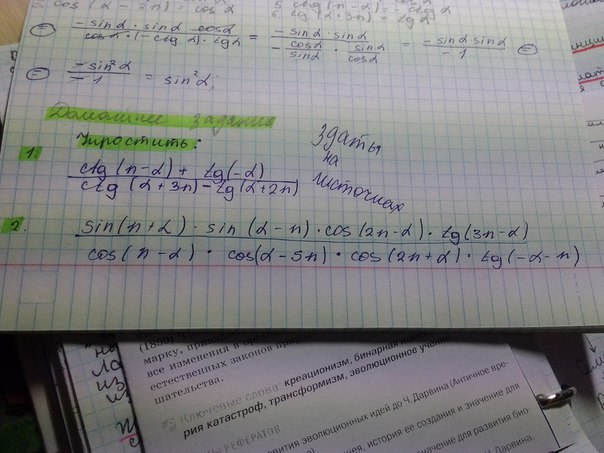 cos (α - 2π) = cos α
5. ctg (π - α) =
6. tg (α + 3π) = tg α
= -sin α · sin α · cos α / cos α · (-ctg α) · tg α = -sin α · sin α / -cos α/sin α · sin α/cos α = -sin α · sin α / -1 =
= -sin² α / -1 = sin² α;
Домашнее задание
Упростить:
Здаты на листочках
1. ctg (π - α) + tg (-α) / ctg (α + 3π) - tg (α + 2π)
2. sin (π + α) · sin (α - π) · cos (2π - α) · tg (3π - α) / cos (π - α) · cos (α - 5π) · cos (2π + α) · tg (-α - π)
марку,
все изменения в
естественных законов
шательства.
Ключевые слова: креационизм, бинарная
рия катастроф, трансформизм, эволюционное учение
РЕФЕРАТОВ
эволюционных идей до Ч. Дарвина (Античное вре-
история ее создания и значение для
значение для развития био-
Ч. Дарвина.